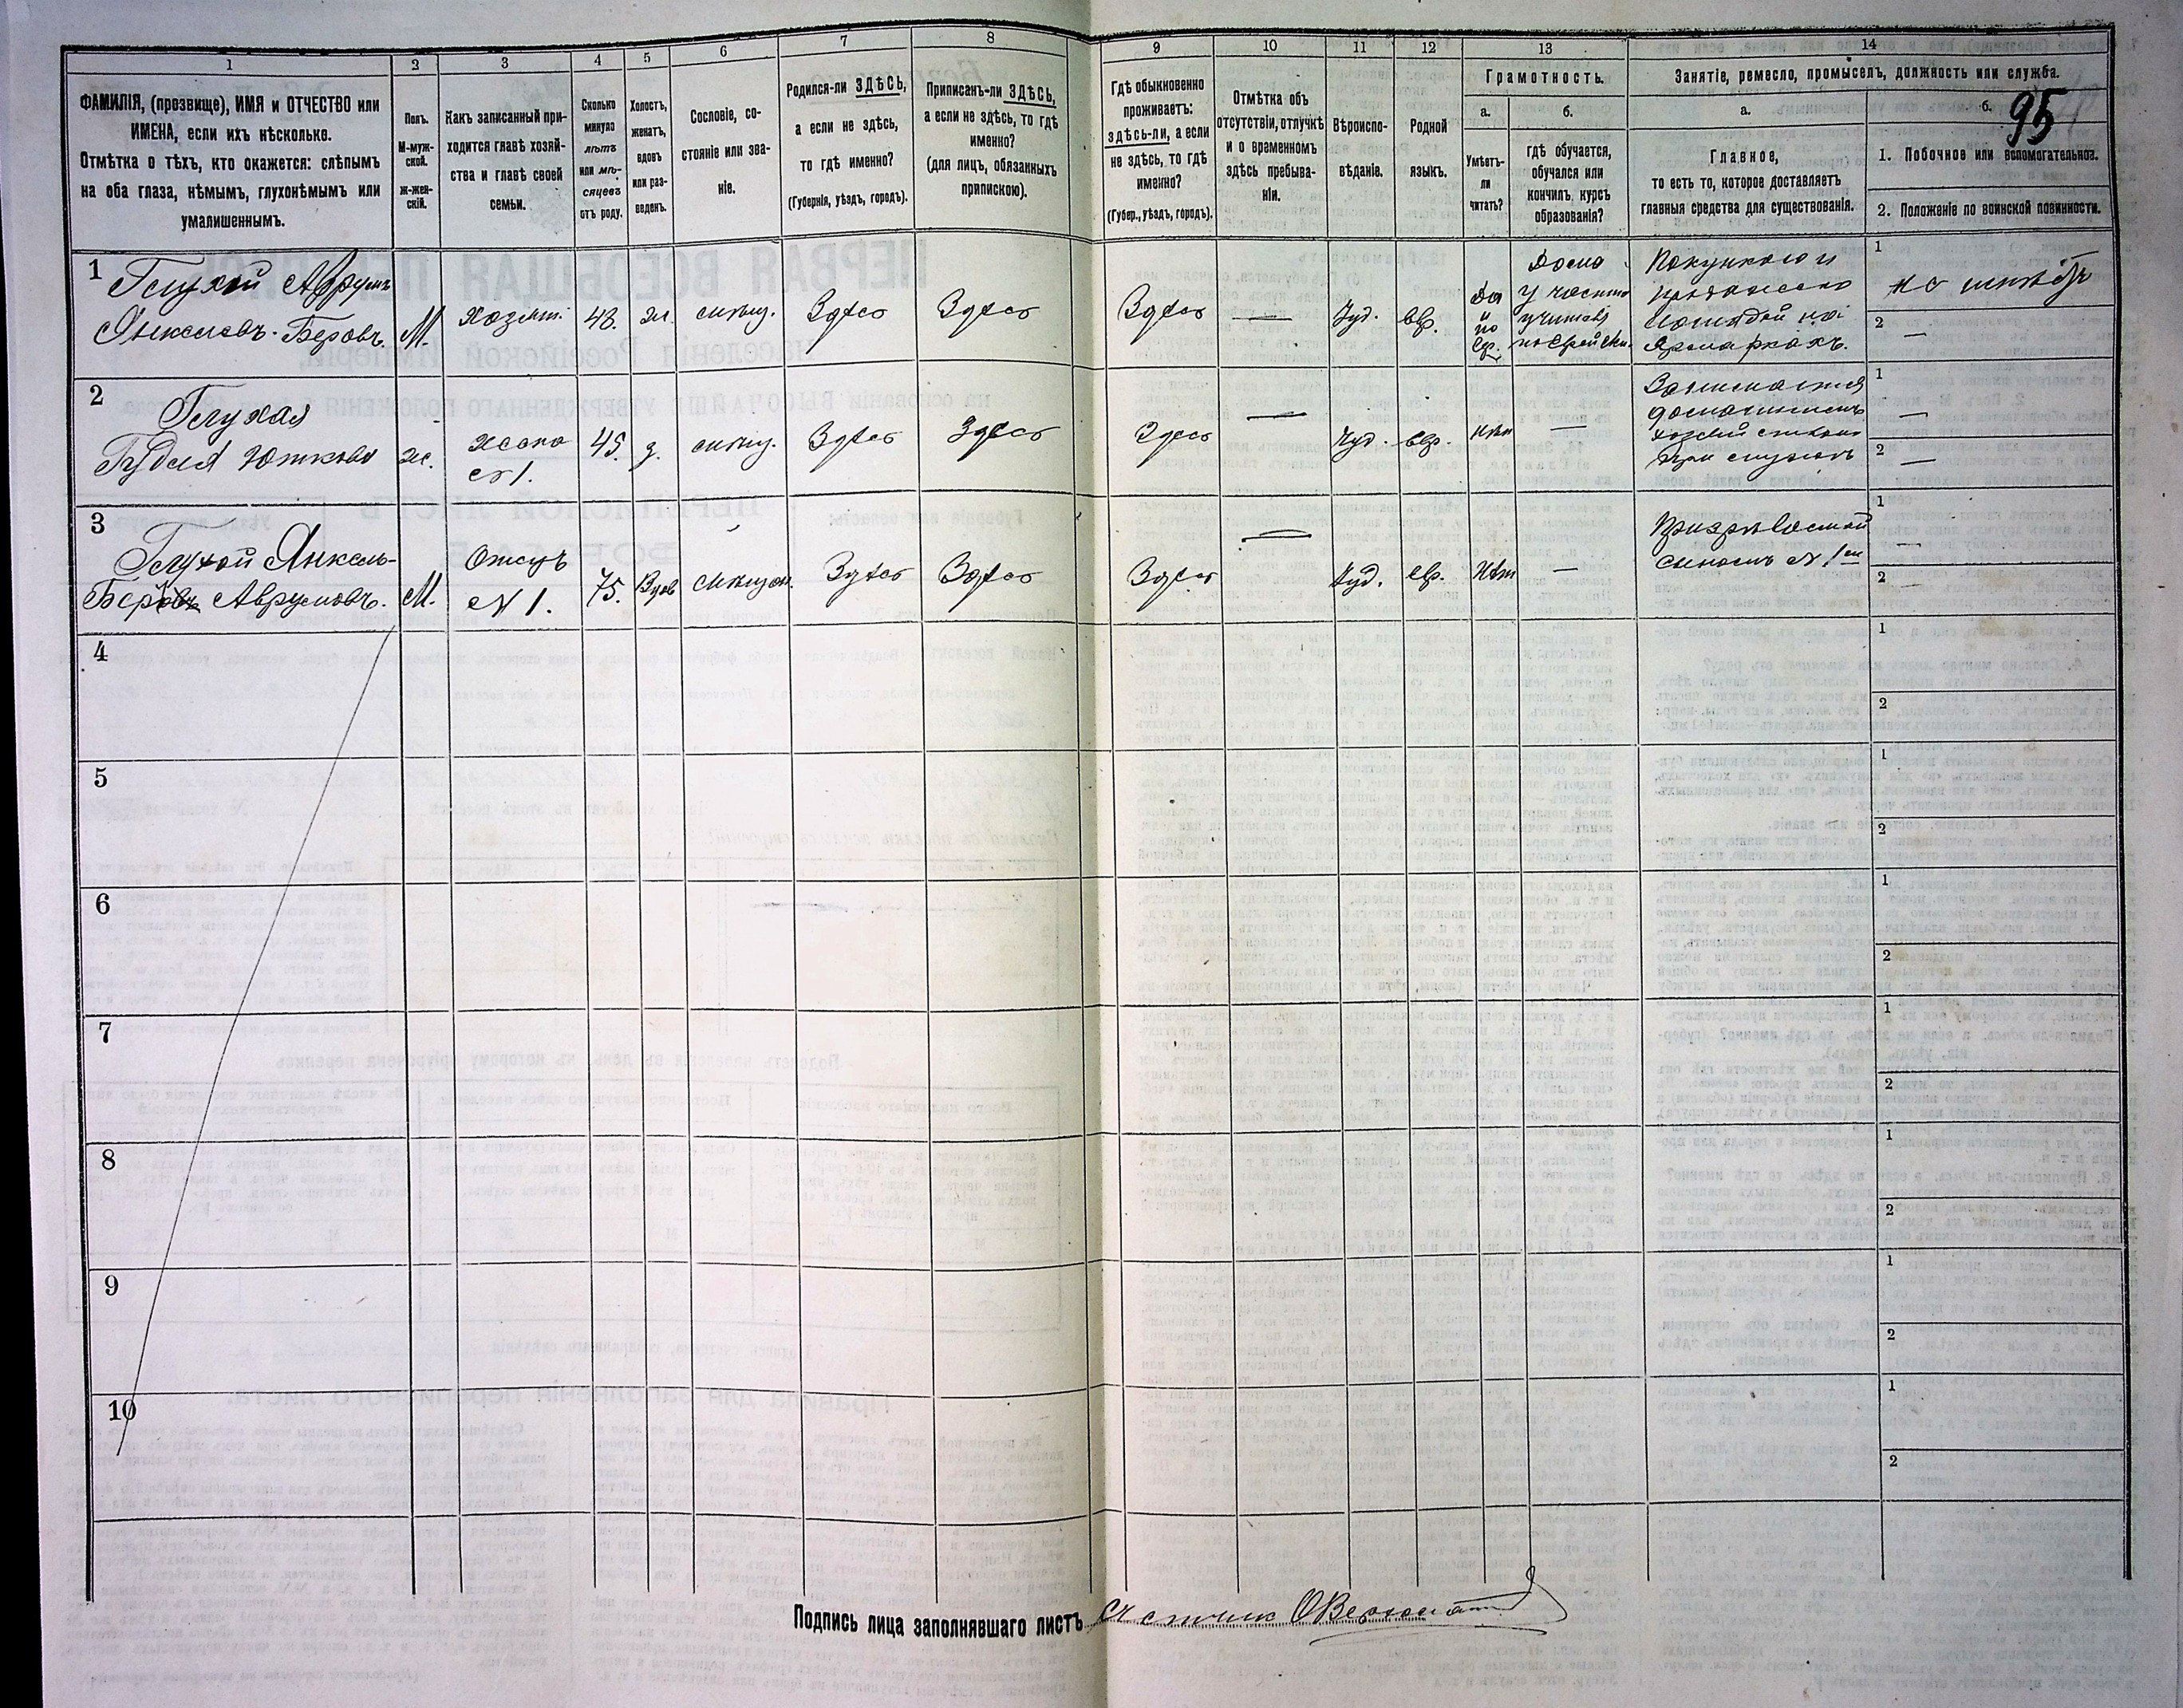 1 2 3 4 5 6 7 8 9 10 11 12 13 14
ФАМИЛІЯ, (прозвище), ИМЯ и ОТЧЕСТВО или
ИМЕНА, если ихъ нѣсколько.
Отмѣтка о тѣхъ, кто окажется: слѣпымъ
на оба глаза, нѣмымъ, глухонѣмымъ или
умалишеннымъ.
Полъ.
М-муж-
ской.
Ж-жен-
скій.
Какъ записанный при-
ходится главѣ хозяй-
ства и главѣ своей
семьи.
Сколько
минуло
лѣтъ
или мѣ-
сяцевъ
отъ роду.
Холостъ,
женатъ,
вдовъ
или раз-
веденъ.
Сословіе, со-
стояніе или зва-
ніе.
Родился-ли ЗДѢСЬ,
а если не здѣсь,
то гдѣ именно?
(Губернія, уѣздъ, городъ).
Приписанъ-ли ЗДѢСЬ,
а если не здѣсь, то гдѣ
именно?
(для лицъ, обязанныхъ
припискою).
Гдѣ обыкновенно
проживаетъ:
здѣсь-ли, а если
не здѣсь, то гдѣ
именно?
(Губер., уѣздъ, городъ).
Отмѣтка объ
отсутствіи, отлучкѣ
и о временномъ
здѣсь пребыва-
ніи.
Вѣроиспо-
вѣданіе.
Родной
языкъ.
Грамотность.
а.
Умѣетъ-
ли
читать?
б.
гдѣ обучается,
обучался или
кончилъ курсъ
образованія?
Занятіе, ремесло, промыселъ, должность или служба.
а.
Главное,
то есть то, которое доставляетъ
главныя средства для существованія.
б.
95
1. Побочное или вспомогательное.
2. Положеніе по воинской повинности.
1
Глухой Аврумъ
Янкелевъ-Беровъ.
М.
Хозяин.
43.
ж.
мѣщ.
Здѣсь
Здѣсь
Здѣсь
—
Іуд.
евр.
да
и
по
евр.
Дома
у частн.
учителя
по еврейски.
Покупкою и
продажею
лошадей на
Ярмаркахъ.
1
2 —
2
Глухая
Гудля Юткова
ж.
жена
№ 1.
45.
з.
мѣщ.
Здѣсь
Здѣсь
Здѣсь
—
Іуд.
евр.
нѣт
—
Занимается
домашнимъ
хозяйствомъ
при мужѣ
1 —
2 —
3
Глухой Янкель-
Бер Аврумовъ.
М.
Отецъ
№ 1.
75.
Вдов
Мѣщан.
Здѣсь
Здѣсь
Здѣсь
—
Іуд.
евр.
Нѣт
—
сыномъ № 1м
1 —
2 —
4 1
2
5 1
2
6 1
2
7 1
2
8 1
2
9 1
2
10 1
2
Подпись лица заполнявшаго листъ Счетчик